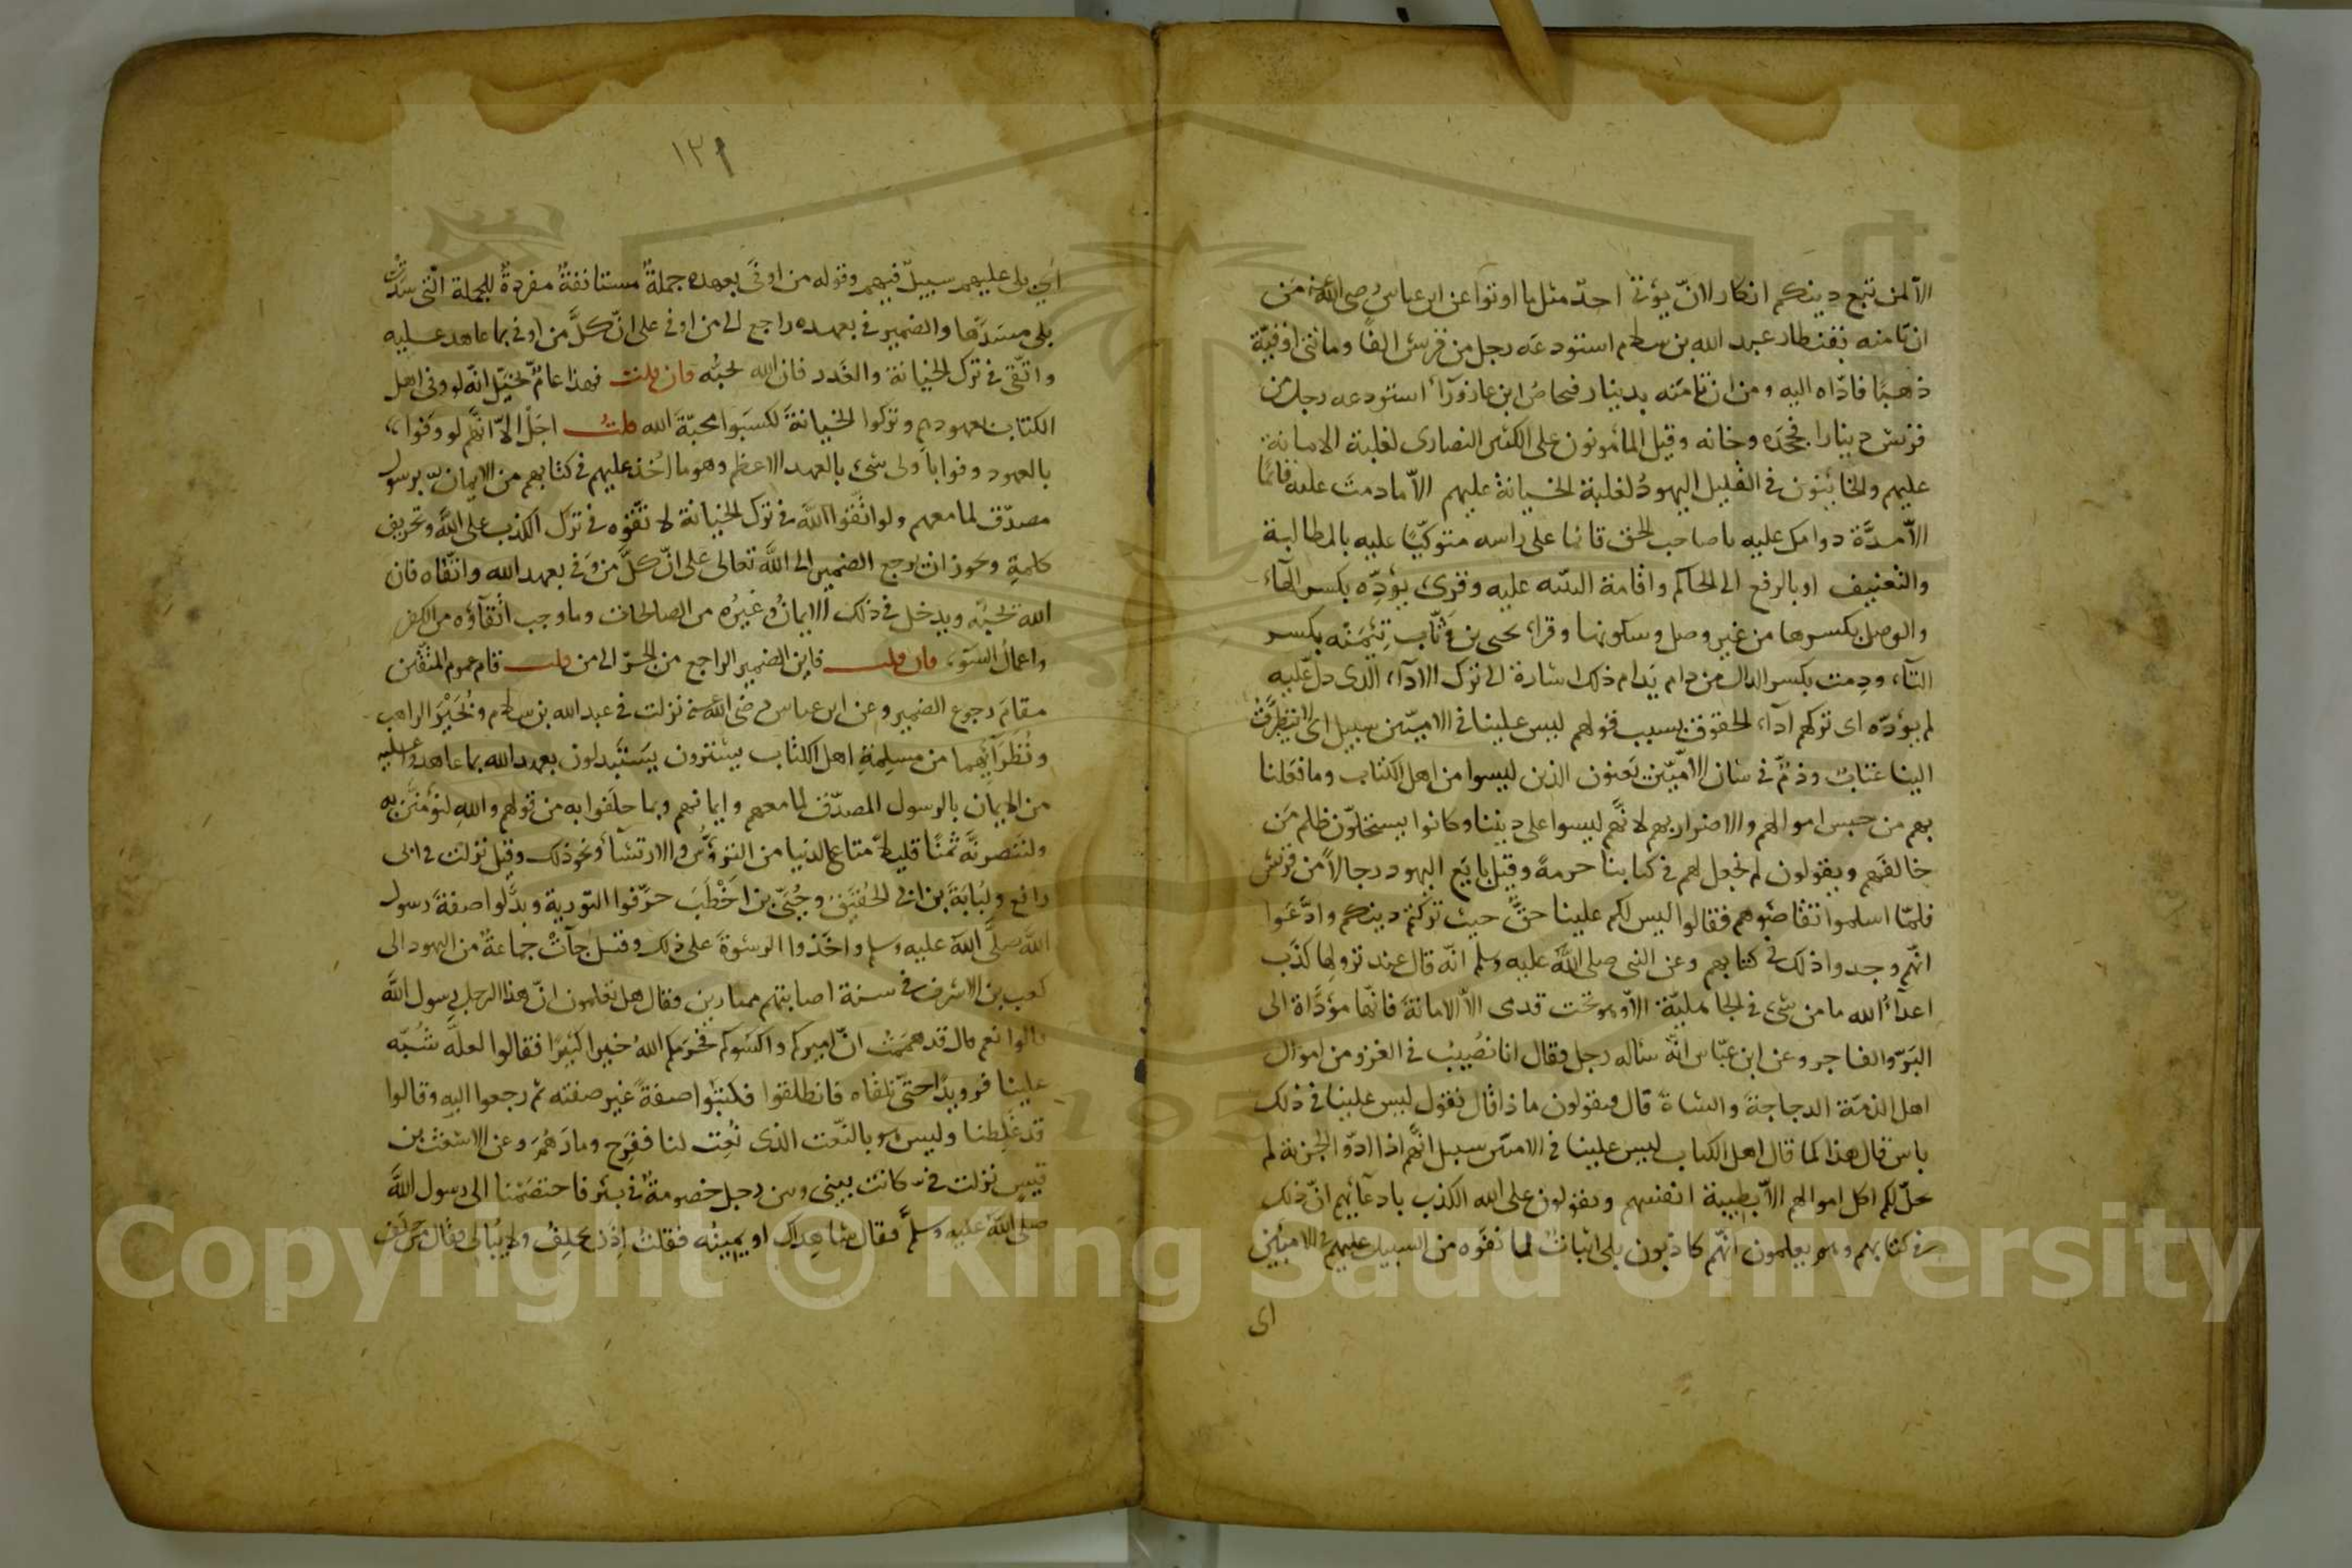 الا لمن تبع دينكم انكار لانّ يؤتى احدٌ مثل ما اوتوا عن ابن عباس رضي الله عنه مَن
ان تامنه بقنطار عبد الله بن سلام استودعه رجل من قريش الفًا ومائتى اوقيّة
ذهبًا فادّاه اليه ومن ان تامنه بدينار فنحاص ابن عازورآء استودعه رجل من
قريش دينارا فجحده وخانه وقيل المأمونون على الكثير النصارى لغلبة الامانة
عليهم والخائنون فى القليل اليهودُ لغلبة الخيانة عليهم الاّ ما دمت عليه قائمًا
الاّ مدّة دوامك عليه يا صاحب الحق قائما على راسه متوكّيًا عليه بالمطالبة
والتعنيف او بالرفع الى الحاكم واقامة البيّنه عليه وقرئ يؤدِّه بكسر الهآء
والوصل بكسرها من غير وصل وسكونها وقرا يحيى بن وثّاب تِئمَنْه بكسر
التآء ودِمت بكسر الدال من دام يَدام ذلك اشارة الى ترك الادآء الذى دلّ عليه
لم يؤدّه اى تركهم ادآء الحقوق بسبب قولهم ليس علينا فى الاميّين سبيل اى لا يتطرّق
الينا عتابٌ وذمٌّ فى شان الامّيّين يَعنون الذين ليسوا من اهل الكتاب وما فعلنا
بهم من حبس اموالهم والاضرار بهم لانّهم ليسوا على ديننا وكانوا يستحلّون ظلم مَن
خالفَهم ويقولون لم نجعل لهم فى كتابنا حرمةً وقيل بايَع اليهود رجالاً من قريش
فلمّا اسلموا تقاضَوهم فقالوا ليس لكم علينا حقٌّ حيث تركتم دينكم وادّعَوا
انّهم وجدوا ذلك فى كتابهم وعن النبى صلى الله عليه وسلم انّه قال عند نزولها كذَب
اعدآءُ الله ما من شئ فى الجاهليّة الاّ وهو تحت قدمى الاّ الامانة فانّها مؤدّاة الى
البَرّ والفاجر وعن ابن عبّاس انّه ساله رجل فقال انا نُصيبُ فى الغزو من اموال
اهل الذمّة الدجاجة والشاة قال فيقولون ما ذا قال نقول ليس علينا فى ذلك
باس قال هذا كما قال اهل الكتاب ليس علينا فى الاميّين سبيل انّهم اذا ادّوا الجزية لم
يحلّ لكم اكل اموالهم الاّ بطيبة انفسهم ويقولون على الله الكذب بادعآئهم انّ ذلك
فى كتابهم وهم يعلمون انّهم كاذبون بلى اثباتٌ لما نفَوه من السبيل عليهم فى الاميّين
اى
١٣١
اى بلى عليهم سبيلٌ فيهم وقوله من اوفى بعهده جملةٌ مستانفةٌ مقررةٌ للجملة التى سَدّتْ
بلى مسَدَّها والضمير فى بعهده راجع الى من اوفى على انّ كلّ من اوفى بما عاهد عليه
واتّقى فى ترك الخيانة والغَدر فان الله يحبّه فان قلت فهذا عامٌّ يخيّل انّه لو وفى اهل
الكتاب بعهودهم وتركوا الخيانةَ لكسَبوا محبّةَ الله قلتُ اجَلْ الاّ انهّم لو وفَوا
بالعهود وفوا باولى شئ بالعهد الاعظم وهو ما اُخذ عليهم فى كتابهم من الايمان برسول
مصدّق لما معهم ولو اتّقَوا الله فى ترك الخيانة لاتّقَوه فى ترك الكذب على الله وتحريف
كلمةِ ويجوز ان يرجع الضمير الى الله تعالى على انّ كلّ من وَفى بعهد الله واتّقاه فان
الله يحبّه ويدخل فى ذلك الايمانُ وغيرُه من الصالحات وما وجب اتّقآؤه من الكفر
واعمال السّوء فان قلت فاين الضمير الراجع من الجزا الى من قلت قام عموم المتّقين
مقامَ رجوع الضمير وعن ابن عباس رضي الله عنه نزلت فى عبد الله بن سلام وبُحَيْرَ الراهب
ونُظَرَآئهما من مسلمةِ اهل الكتاب يشترون يَستَبدلون بعهد الله بما عاهدوا عليه
من الايمان بالرسول المصدّق لما معهم وايمانهم وبما حلَفوا به من قولهم واللهِ لنؤمننّ به
ولننصرنّه ثمنًا قليلا متاع الدنيا من الترؤّس والارتشآء ونحو ذلك وقيل نزلت فى ابى
رافع ولُبابَة بن ابى الحُقيق وحُيَىّ بن اَخْطَبَ حرّفوا التورية وبدّلوا صفةَ رسول
الله صلّى الله عليه وسلم واخَذوا الرشوةَ على ذلك وقيل جآءتْ جماعةٌ من اليهود الى
كعب بن الاشرف فى سنة اصابتهم ممتارين فقال هل تعلمون انّ هذا الرجل رسول الله
قالوا نعم قال قد همَمتُ ان اميركم واكسَوكم فحرَمكم اللهُ خيرا كثيرًا فقالوا لعلّه شُبّه
علينا فرويدًا حتّى نلقاه فانطلقوا فكتبُوا صفةً غير صفته ثم رجعوا اليه وقالوا
قد غلِطنا وليس هو بالنّعت الذى نُعِت لنا ففَرِح ومارَهُمَ وعن الاشعث بن
قيس نزلت فىّ كانت بينى وبين رجل خصومةٌ فى بئر فاختصَمْنا الى رسول الله
صلى الله عليه وسلّم فقال شاهداك او يمينُه فقلت اِذن يحلِفُ ولا يُبالى فقال من حلَف
Copyright © King Saud University